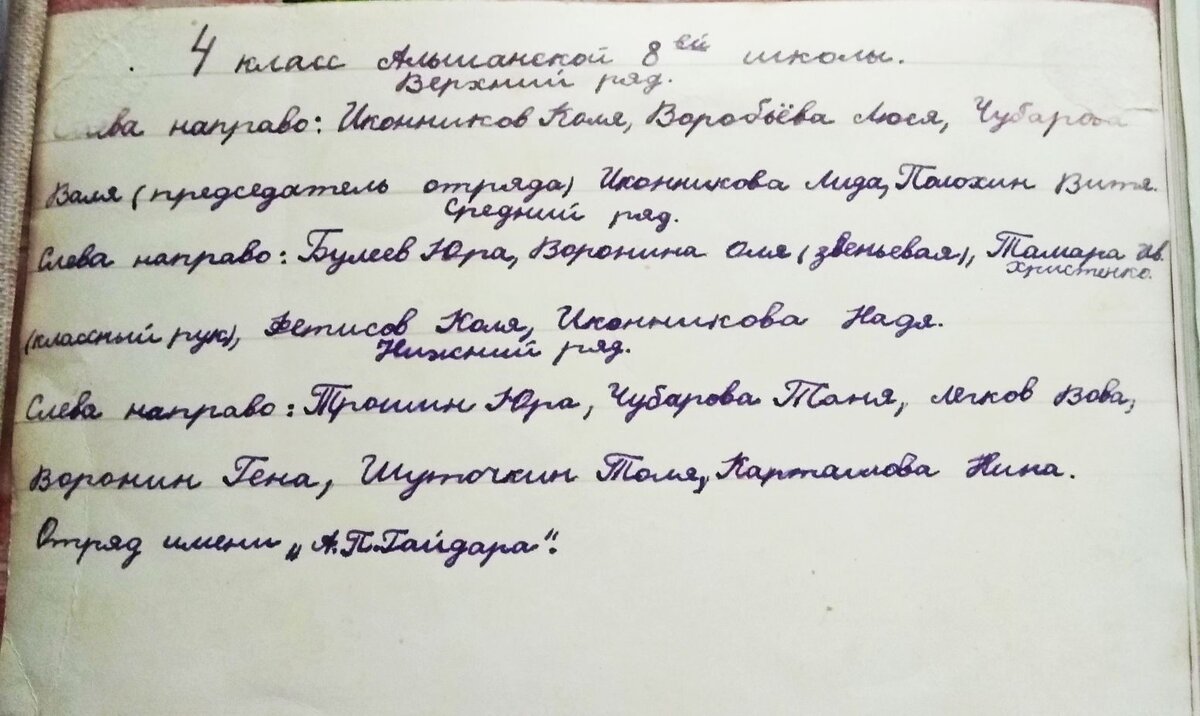 4 класс Альшанской 8ей школы.
Верхний ряд.
Слева направо: Иконников Коля, Воробьёва Люся, Чубарова
Валя (председатель отряда) Иконникова Лида, Палохин Витя.
Средний ряд.
Слева направо: Булеев Юра, Воронина Оля (звеньевая), Тамара Ив.
Христенко.
(классный рук), Фетисов Коля, Иконникова Надя.
Нижний ряд.
Слева направо: Трошин Юра, Чубарова Таня, Легков Вова,
Воронин Гена, Шуточкин Толя, Карташова Нина.
Отряд имени „А.П.Гайдара".